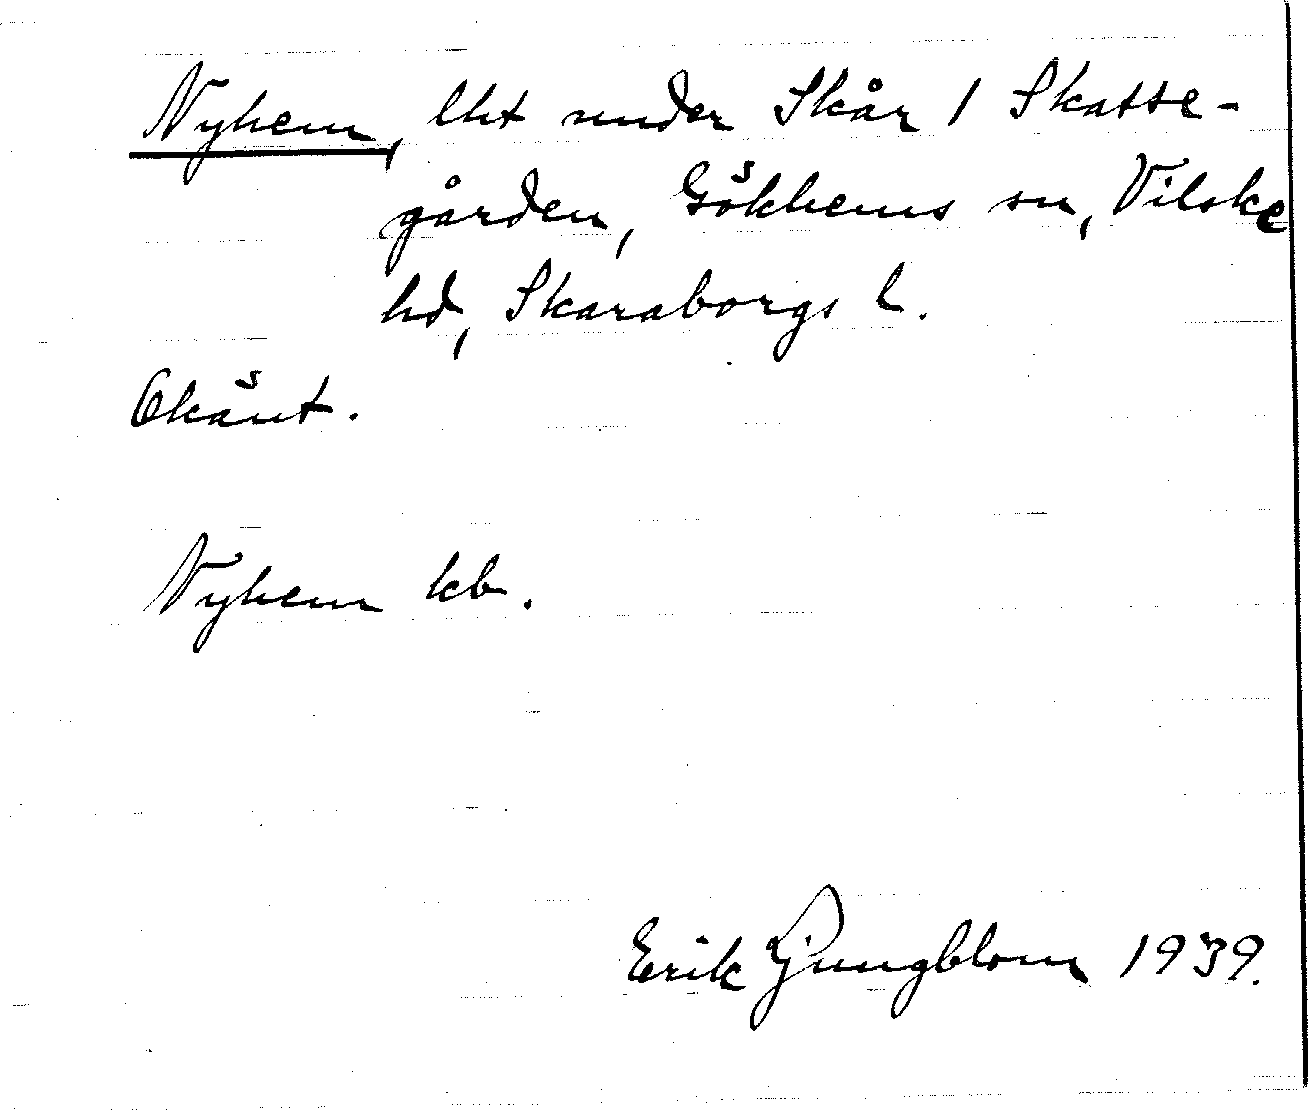 Nyhem, lht under Skår 1 Skatte-
gården, Gökhems sn, Vilske
hd, Skaraborgs l.
Okänt.
Nyhem kb.
Erik Ljungblom 1939.